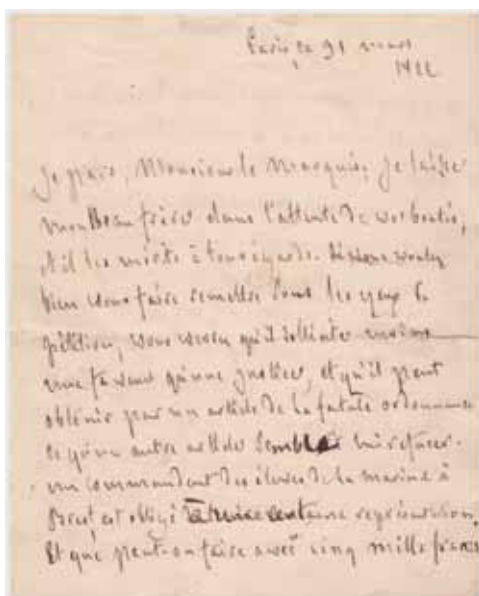 Paris, ce 31 mars
1822
Je pars, Monsieur le Marquis, je laisse
mon Beau frère dans l'attente de vos bontés,
et il les mérite à tous égards. Si vous voulez
bien vous faire remettre sous les yeux sa
pétition, vous verrez qu'il sollicite moins
une faveur qu'une justice, et qu'il peut
obtenir par un article de la fatale ordonnance
ce qu'un autre article semble lui refuser.
un commandant des élèves de la marine à
Brest est obligé à une certaine représentation.
Et que peut-on faire avec cinq mille francs